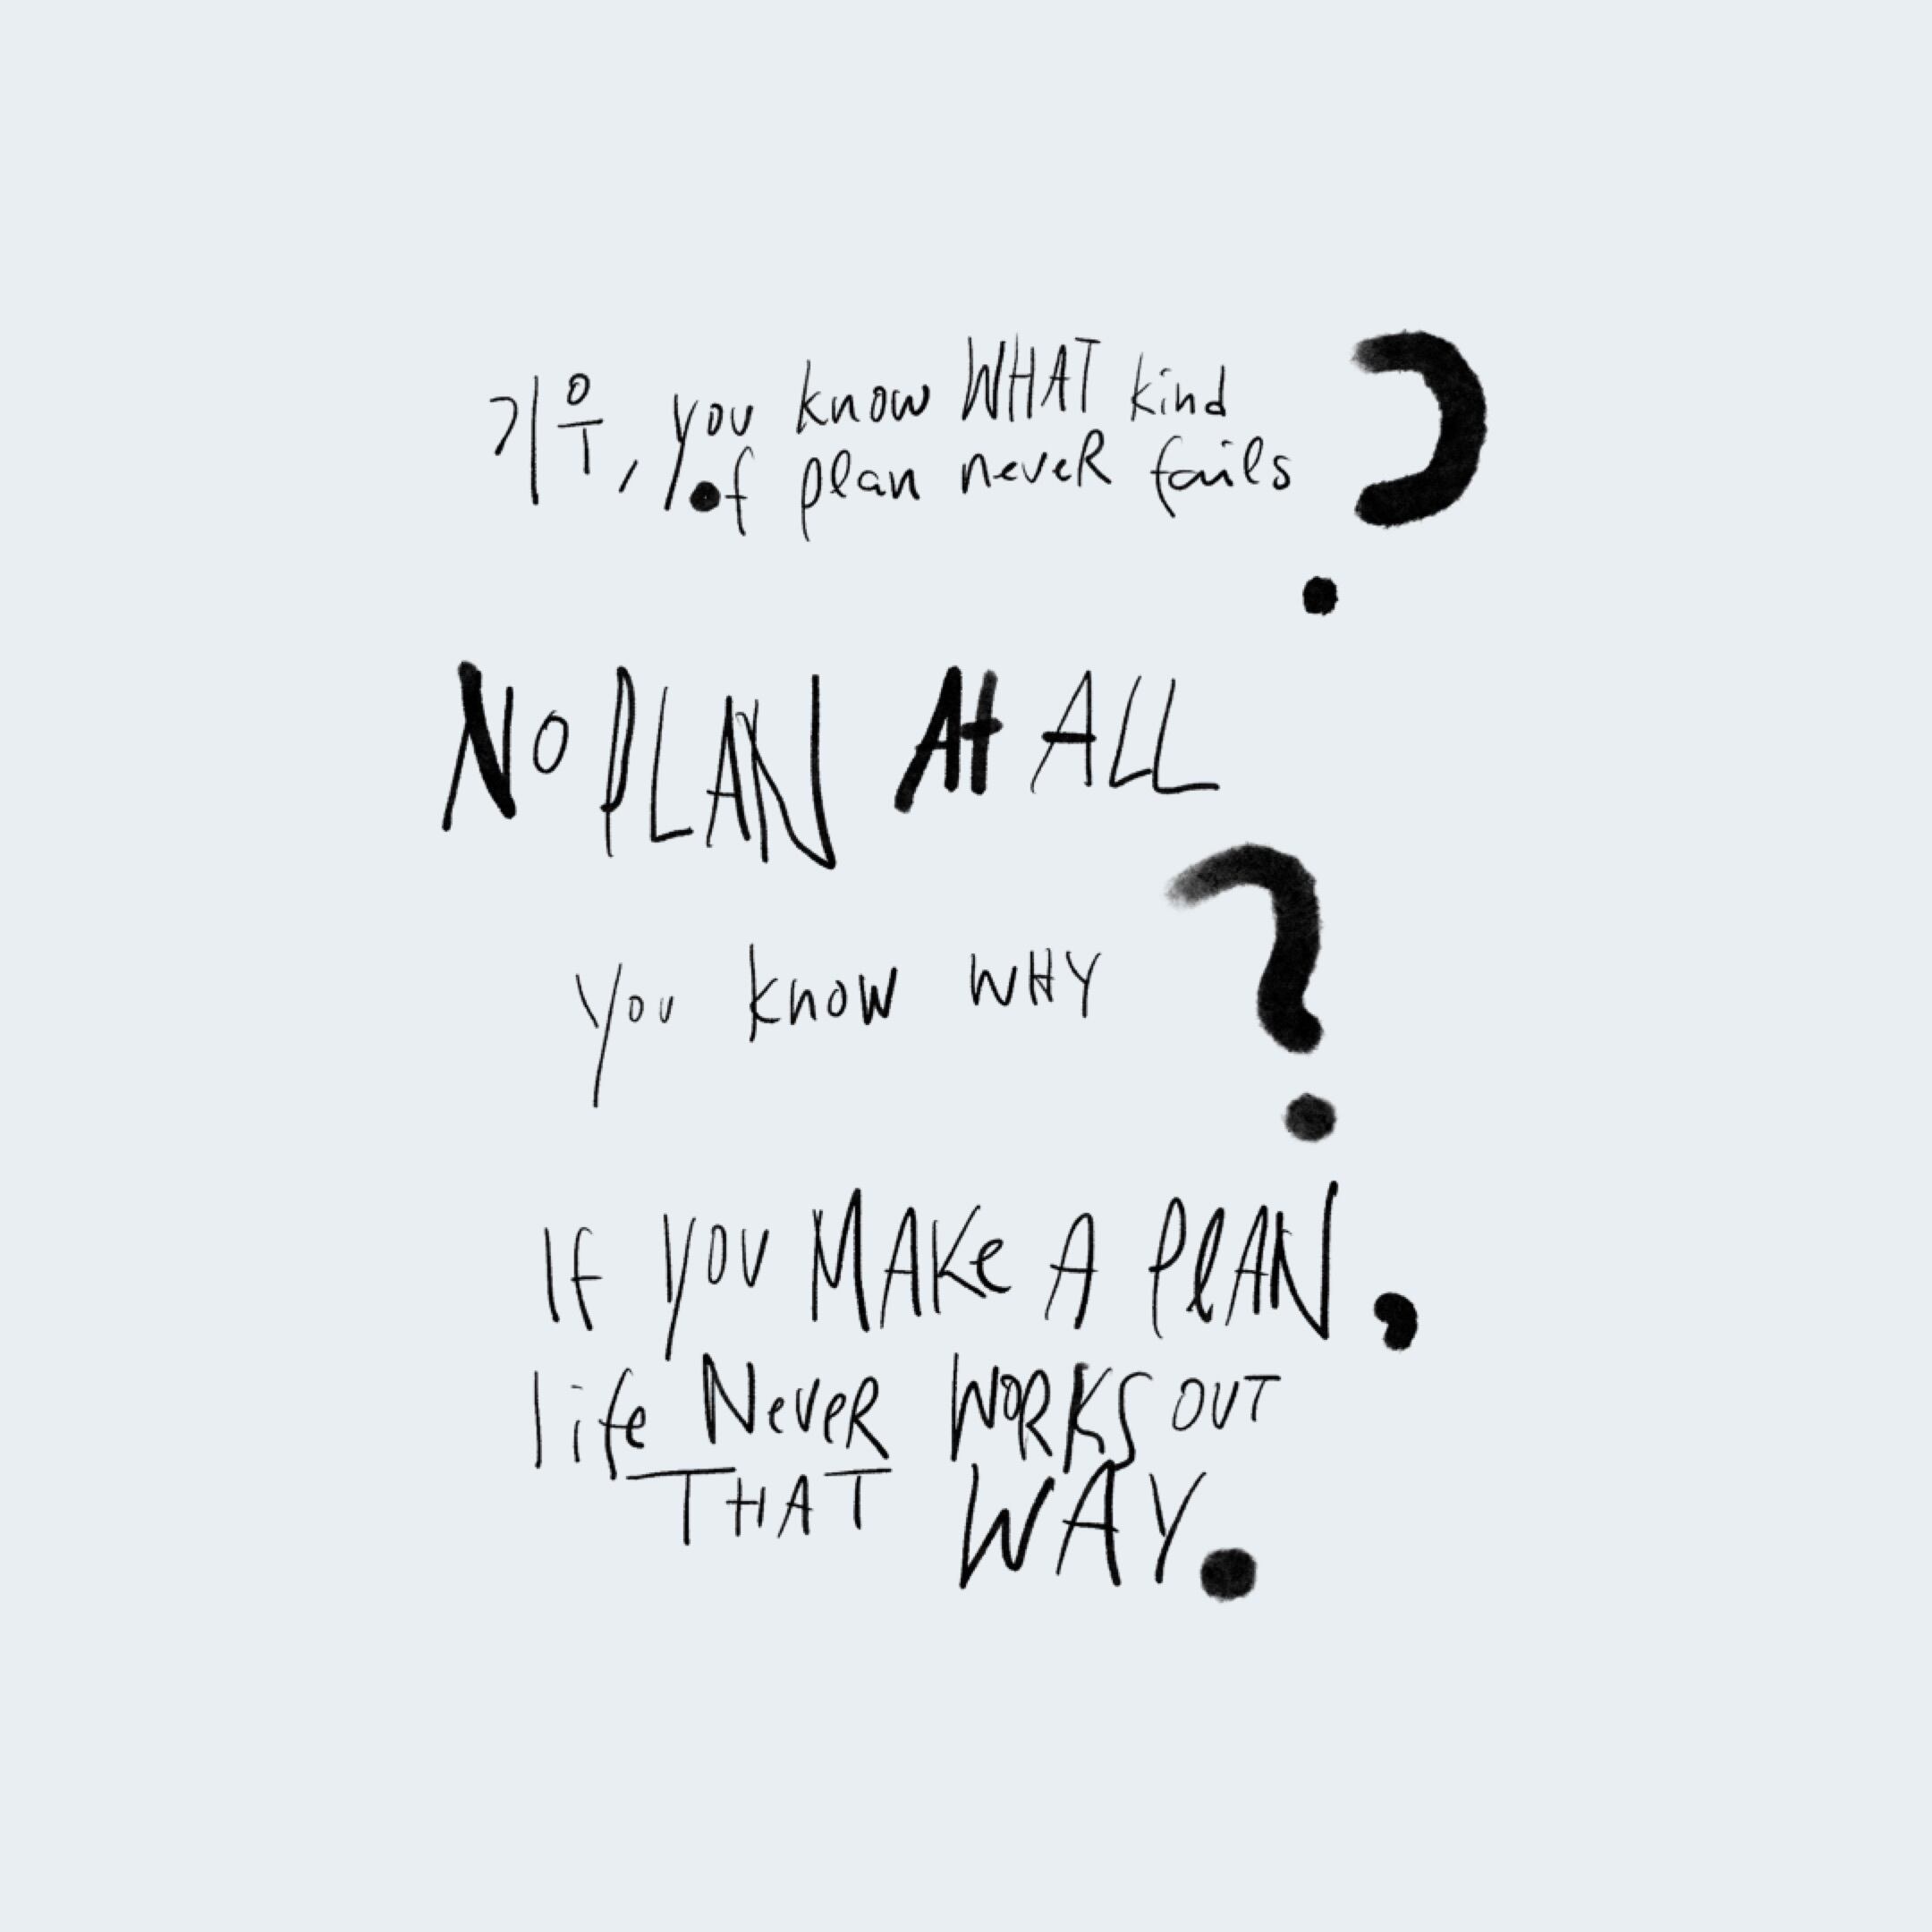 기우, you know WHAT kind
of plan never fails?
NO PLAN At ALL
you know WHY?
IF YOU MAKe A PlAN,
life NeveR WORKS OUT
THAT WAY.